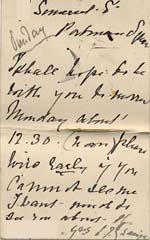 Somerset St
Sunday
Portman Square
I shall hope to be
with you to-morrow
Monday about
12.30.
wire early if you
cannot see me
I want much to
see you about
Yrs